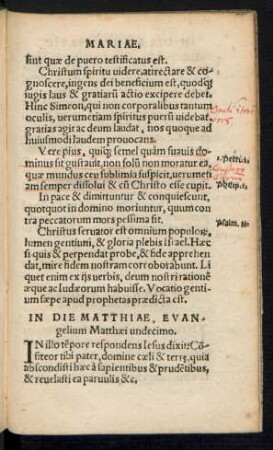 MARIAE.
sint quæ de puero testificatus est.
Christum spiritu uidere, attrectare & co
gnoscere, ingens dei beneficium est, quodq́;
iugis laus & gratiarũ actio excipere debet.
Hinc Simeon, qui non corporalibus tantum
oculis, uerumetiam spiritus puerũ uidebat,
gratias agit ac deum laudat, nos quoque ad
huiusmodi laudem prouocans.
Vere pius, quiq; semel quàm suauis do
minus sit gustauit, non solũ non moratur ea,
quæ mundus ceu sublimia suspicit, uerumeti
am semper dissolui & cũ Christo esse cupit.
In pace & dimittuntur & conquiescunt,
quotquot in domino moriuntur, quum con
tra peccatorum mors pessima sit.
Christus seruator est omnium populorũ,
lumen gentium, & gloria plebis Israel. Hæc
si quis & perpendat probe, & fide apprehen
dat, mire fidem nostram corroborabunt. Li
quet enim ex ijs uerbis, deum nostri ratione
æque ac Iudæorum habuisse. Vocatio genti
um sæpe apud prophetas prædicta est.
IN DIE MATTHIAE, EVAN-
gelium Matthæi undecimo.
IN illo tẽpore respondens Iesus dixit: Cõ
fiteor tibi pater, domine cæli & terrę, quia
abscondisti hæc à sapientibus & prudẽtibus,
& reuelasti ea paruulis &c.
1. Petri.
Philip. 1.
psalm.